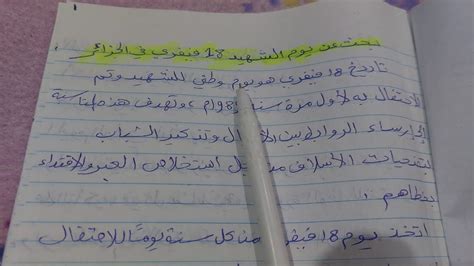 بحث عن يوم الشهيد 18 فيفري في الجزائر
تاريخ 18 فيفري هو يوم وطني للشهيد وتم
الاحتفال به لأول مرة سنة وتهدف هذه المناسبة
إلى إرساء الروابط بين وتذكير الشباب
بتضحيات الأسلاف من استخلاص العبر والاقتداء
بخطاهم .
اتخذ يوم 18 فيفري من كل سنة يومًا للاحتفال